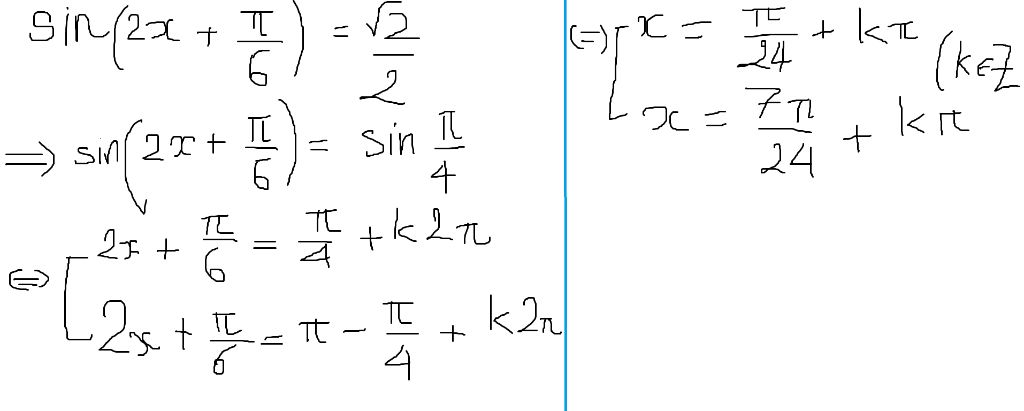 sin(2x + π/6) = √2/2
⇒ sin(2x + π/6) = sin π/4
⇔ [ 2x + π/6 = π/4 + k2π
2x + π/6 = π − π/4 + k2π
⇔ [ x = π/24 + kπ
x = 7π/24 + kπ
(k∈Z